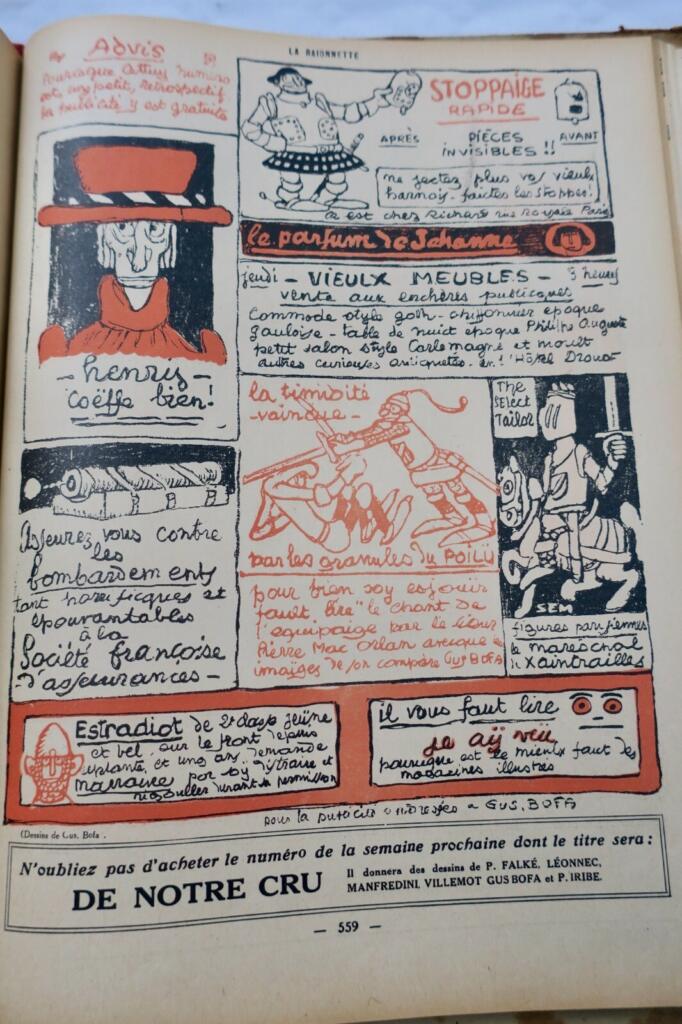 LA BAIONNETTE
Advis
Pourceque cettuy numéro
est, ung petit, Retrospectif
la publicité y est gratuite
STOPPAIGE
RAPIDE
APRÈS
PIÈCES
INVISIBLES !!
AVANT
ne jectez plus vos vieulx
harnois - faictes les stopper!
c'est chez Richard rue Royale Paris
le parfum de Jehanne
henrys
coëffe bien!
jeudi - VIEULX MEUBLES - 3 heures
vente aux enchères publicques
Commode style goth - chiffonnier époque
gauloise - table de nuict époque Philippe Auguste
petit salon style Carlemagne et moult
aultres curieuses anticquetés - en l'Hôtel Drouot
la timidité
- vaincue -
par les granules du POILU
The
Select
Tailor
SEM
figures parisiennes
le mareschal
de Xaintrailles
Asseurez vous contre
les
bombardements
tant horrificques et
épouvantables
à la
Société françoise
- d'asseurances -
pour bien soy esjouir
fault lire "le chant de
l'équipaige par le sieur
Pierre Mac Orlan avecque
imaiges de son compère GUS BOFA
Estradiot de 2e classe jeune
et bel, sur le front depuis
et ung an, demande
marraine por soy distraire et
durant sa permission
il vous fault lire
je ay veü
pourceque est le mieulx faict des
magazines illustrés
pour la publicité s'adresser à GUS. BOFA
(Dessins de Gus. Bofa.
N'oubliez pas d'acheter le numéro de la semaine prochaine dont le titre sera :
DE NOTRE CRU
Il donnera des dessins de P. FALKÉ, LÉONNEC,
MANFREDINI, VILLEMOT GUS BOFA et P. IRIBE.
— 559 —